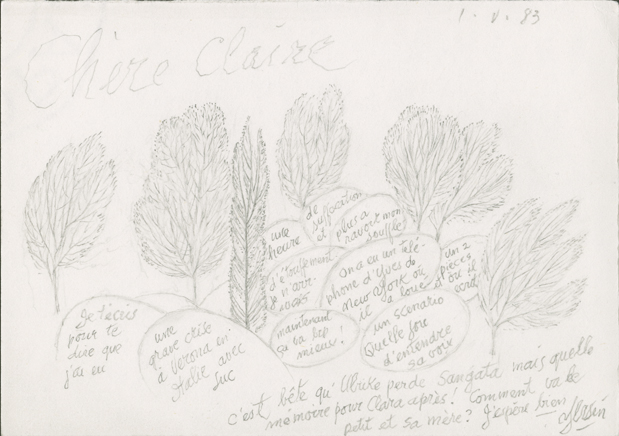 1. V. 83
Chère Claire
Je t'écris
pour te
dire que
j'ai eu
une
grave crise
à Verona en
Italie avec
Luc
une
heure
d'étouffement
je n'arri-
vais
de
suffocation
et
plus a
ravoir mon
souffle
maintenant
ça va bcp
mieux!
On a eu un télé-
phone d'Yves de
New York où
il a loué
un 2
pièces
où il
écrit
un scenario
Quelle joie
d'entendre
sa voix
c'est bête qu' perde Sangata mais quelle
mémoire pour Clara après! Comment va le
petit et sa mère? J'espère bien